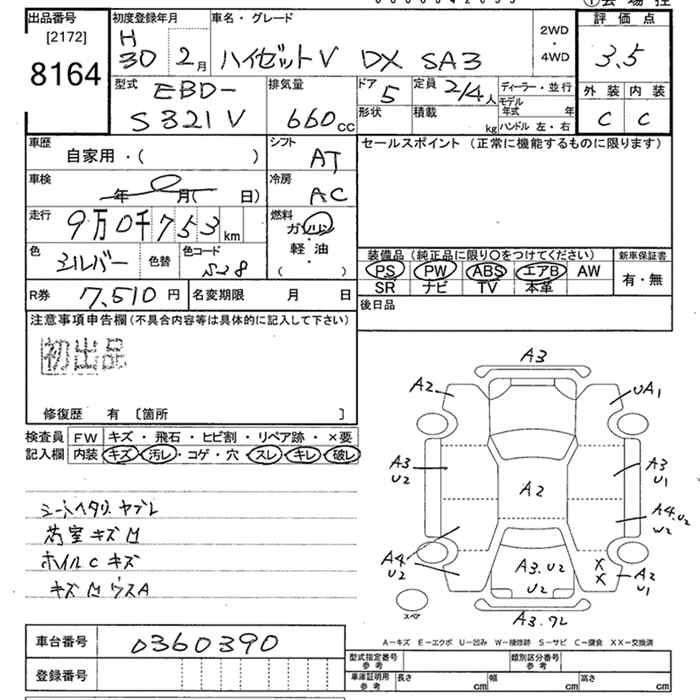 出品番号
[2172]
8164
初度登録年月
H
30 2月
車名・グレード
ハイゼットV DX SA3
2WD
・
4WD
評価点
3.5
外装 内装
C C
型式
EBD-
S321V
排気量
660 CC
ドア
5
定員 2/4人
形状
積載 kg
ディーラー・並行
モデル年式 年
ハンドル 左・右
車歴
自家用・( )
シフト
AT
セールスポイント (正常に機能するものに限ります)
車検
年 月( 日)
冷房
AC
走行
9万0千753km
燃料
ガソリン
・
軽油
( )
色
シルバー
色替
色コード
S28
装備品(純正品に限り○をつけてください)
PS PW ABS エアB AW
SR ナビ TV 本革
新車保証書
有・無
R券 7,510円
名変期限 月 日
後日品
注意事項申告欄(不具合内容等は具体的に記入して下さい)
初出品
修復歴 有 〔箇所 〕
検査員
記入欄
FW キズ・飛石・ヒビ割・リペア跡・×要
内装 キズ・汚レ・コゲ・穴・スレ・キレ・破レ
シートヘタリ、ヤブレ
荷室キズM
ホイルCキズ
キズMウスA
A3
A2
UA1
A3
U2
A2
A3
U1
A4.U2
W2
A4
U2
A3.U2
U2
X
X
A2
U1
スペア
A3.92
A-キズ E-エクボ U-凹み W-補修跡 S-サビ C-腐食 XX-交換済
車台番号 0360390
登録番号
型式指定番号
参考
類別区分番号
参考
車庫証明用
参考
長さ cm 幅 cm 高さ cm